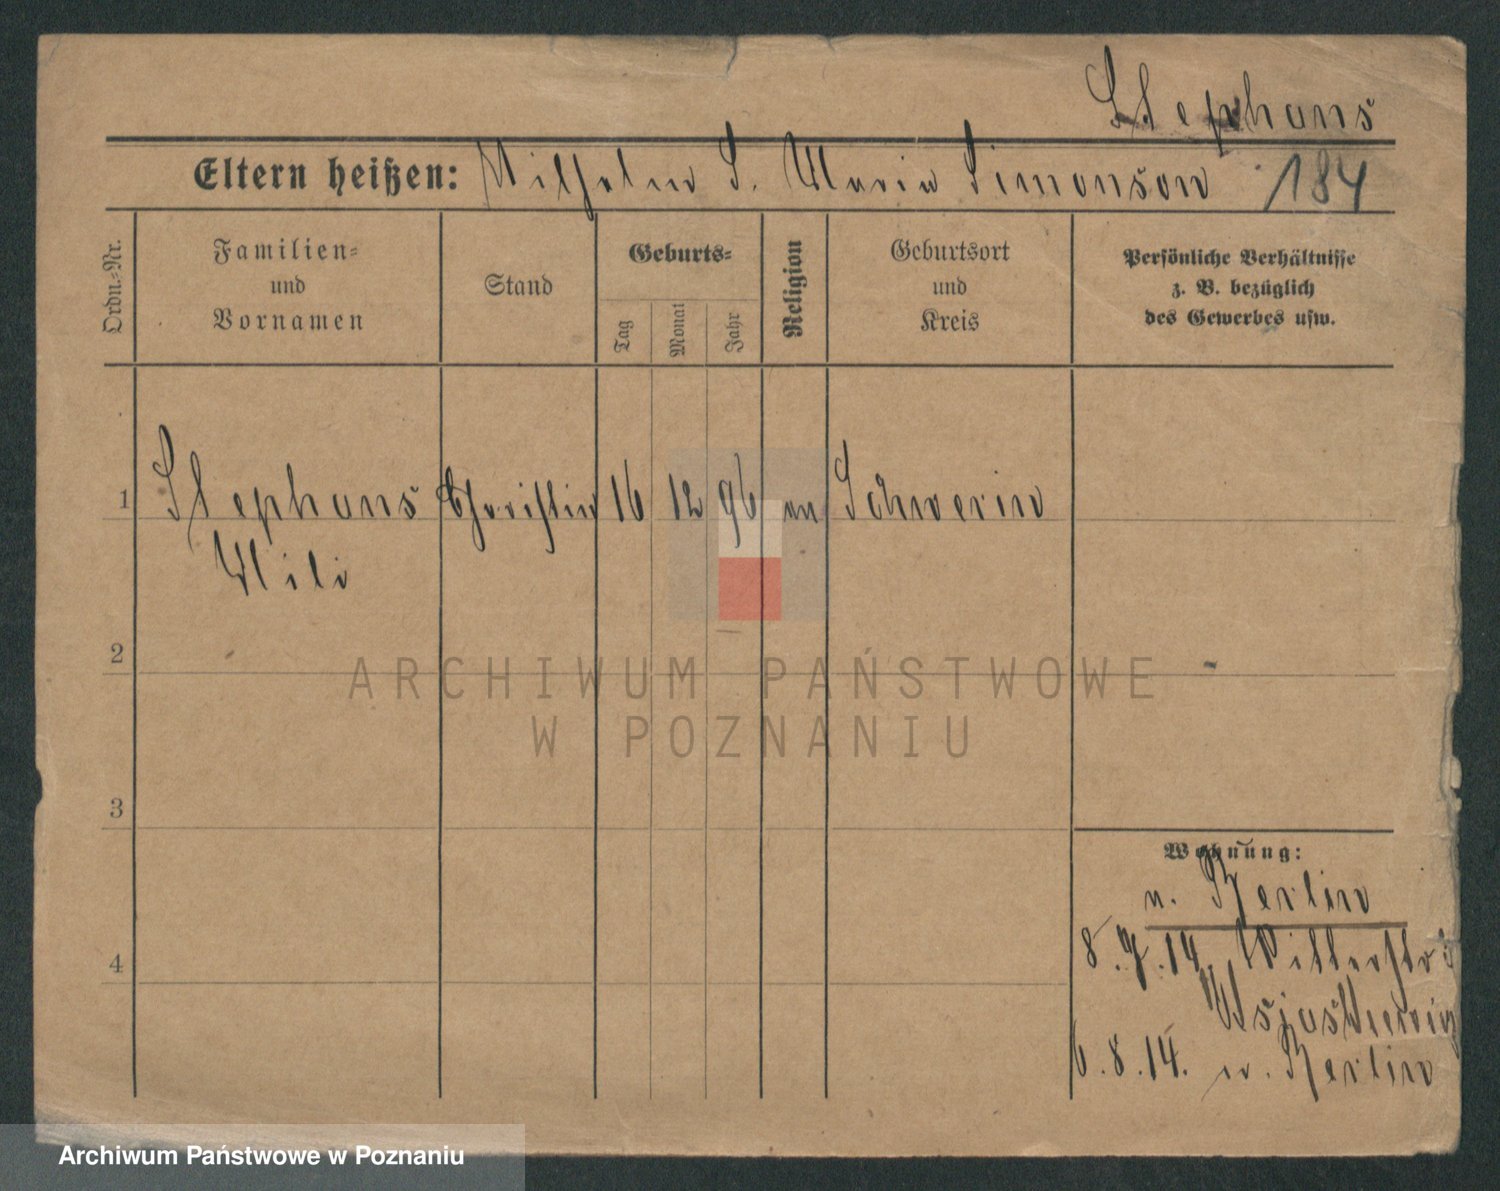 Stephans
Eltern heißen: Wilhelm S. Maria Simonson 184
Ordn.-Nr.
Familien-
und
Vornamen
Stand
Geburts-
Tag
Monat
Jahr
Religion
Geburtsort
und
Kreis
Persönliche Verhältnisse
z. B. bezüglich
des Gewerbes usw.
1 Stephans 16 12 96 Schwerin
Wili
2
3
4
Wohnung:
n. Berlin
8.7.14.
6.8.14. n. Berlin
ARCHIWUM PAŃSTWOWE
W POZNANIU
Archiwum Państwowe w Poznaniu